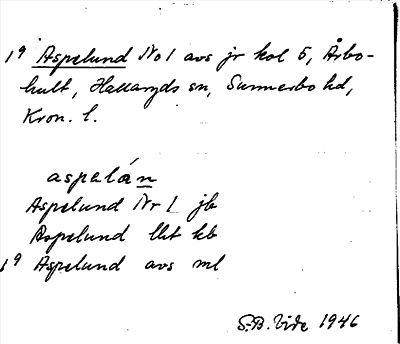 19 Aspelund No 1 avs jr kol 5, Årbo-
hult, Hallaryds sn, Sunnerbo hd,
Kron. l.
aspelán
Aspelund Nr 1 jb
Aspelund lht kb
19 Aspelund avs ml
S.-B. Vide 1946